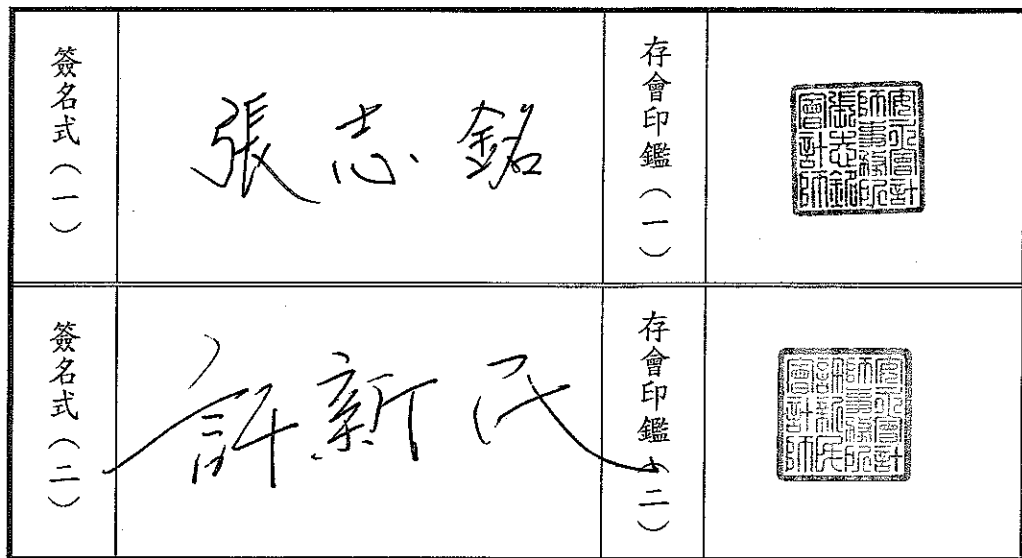 簽名式（一）
張志銘
存會印鑑（一）
安永會計
師事務所
張志銘
會計師
簽名式（二）
許新民
存會印鑑（二）
安永會計
師事務所
許新民
會計師